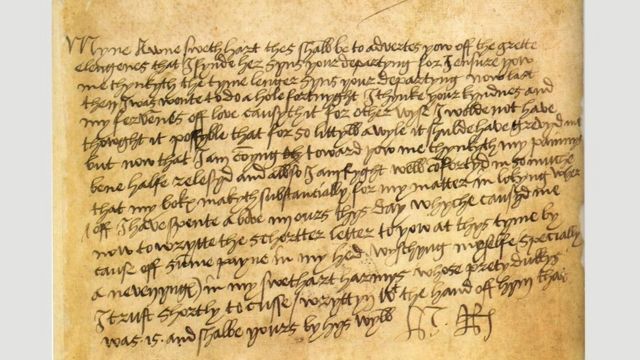 Myne awne swethart thes shall be to advertes yow off the grette
elengenes that I fynde her syns your departyng for I ensure yow
me thynkyth the tyme lenger syns your departyng now last
then I was wonte to do a hole fortnyght I thynke your kyndnes and
my fervents off love causyth it for other wyse I wolde not have
thowght it possyble that for so littyll a wyle it shulde have grevyd me
but now that I am comyng toward yow me thynkyth my painnys
bene halfe relesyd and allso I am ryght well comfortyd in so muche
that my boke makyth substantially for my matter in lokyng wheroff
I have spente above ours thys day whyche causyd me
now to wrytte the schortter letter to yow at thys tyme by
cause off summe payne in my hed wysshyng my selfe specially
a nevenyng in my swethart harmys whose prety dukkys
I trust shortly to cusse wryttyn with the hand off hym that
was is and shalbe yours by hys wyll H. R